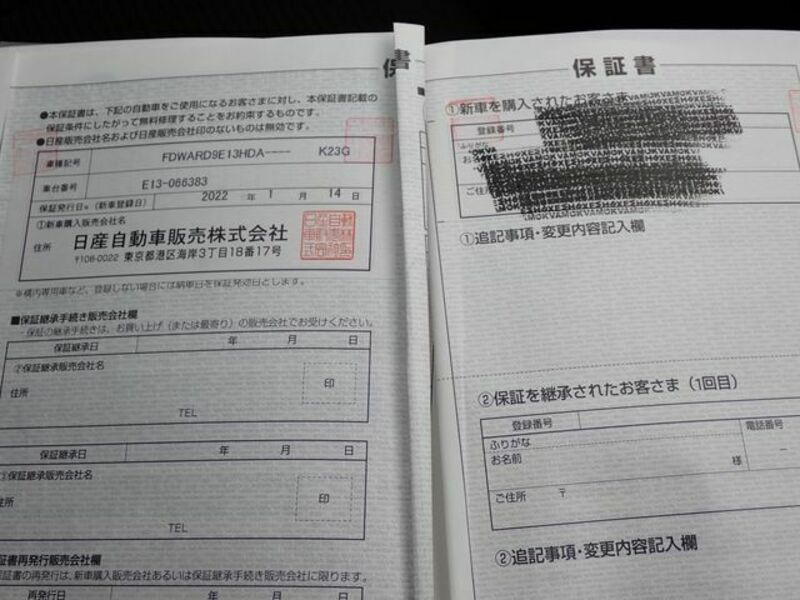 保証書
●本保証書は、下記の自動車をご使用になるお客さまに対し、本保証書記載の
保証条件にしたがって無料修理することをお約束するものです。
●日産販売会社名および日産販売会社印のないものは無効です。
車種記号 FDWARD9E13HDA---- K23G
車台番号 E13-066383
保証発行日。(新車登録日) 2022 年 1 月 14 日
①新車購入販売会社名
日産自動車販売株式会社
住所 〒108-0022 東京都港区海岸3丁目18番17号
※構内専用車など、登録しない場合には納車日を保証発効日とします。
■保証継承手続き販売会社欄
・保証の継承手続きは、お買い上げ(または最寄り)の販売会社でお受けください。
保証継承日 年 月 日
②保証継承販売会社名
印
住所
TEL
保証継承日 年 月 日
③保証継承販売会社名
印
住所
TEL
証書再発行販売会社欄
保証書の再発行は、新車購入販売会社あるいは保証継承手続き販売会社に限ります。
再発行日 年 月 日
書
①新車を購入されたお客さま
登録番号
ふりがな
お
ご住
①追記事項・変更内容記入欄
②保証を継承されたお客さま(1回目)
登録番号
電話番号
ふりがな
お名前 様
ご住所 〒
②追記事項・変更内容記入欄